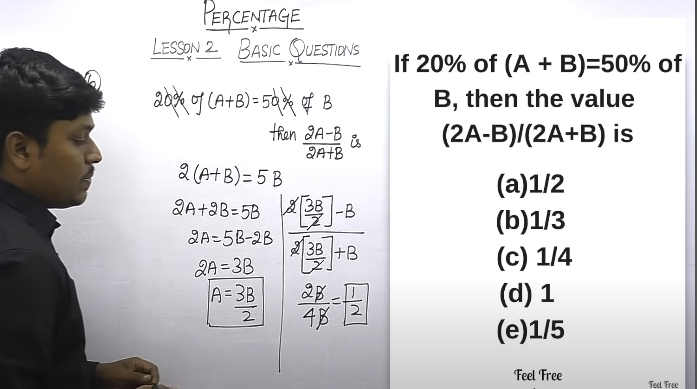 PERCENTAGE
LESSON 2 BASIC QUESTIONS
20% of (A+B) = 50% of B
then 2A-B/2A+B is
2(A+B) = 5B
2A+2B = 5B
2A = 5B-2B
2A = 3B
A = 3B/2
2[3B/2] - B
2[3B/2] + B
2B/4B = 1/2
If 20% of (A + B)=50% of
B, then the value
(2A-B)/(2A+B) is
(a)1/2
(b)1/3
(c) 1/4
(d) 1
(e)1/5
Feel Free
Feel Free